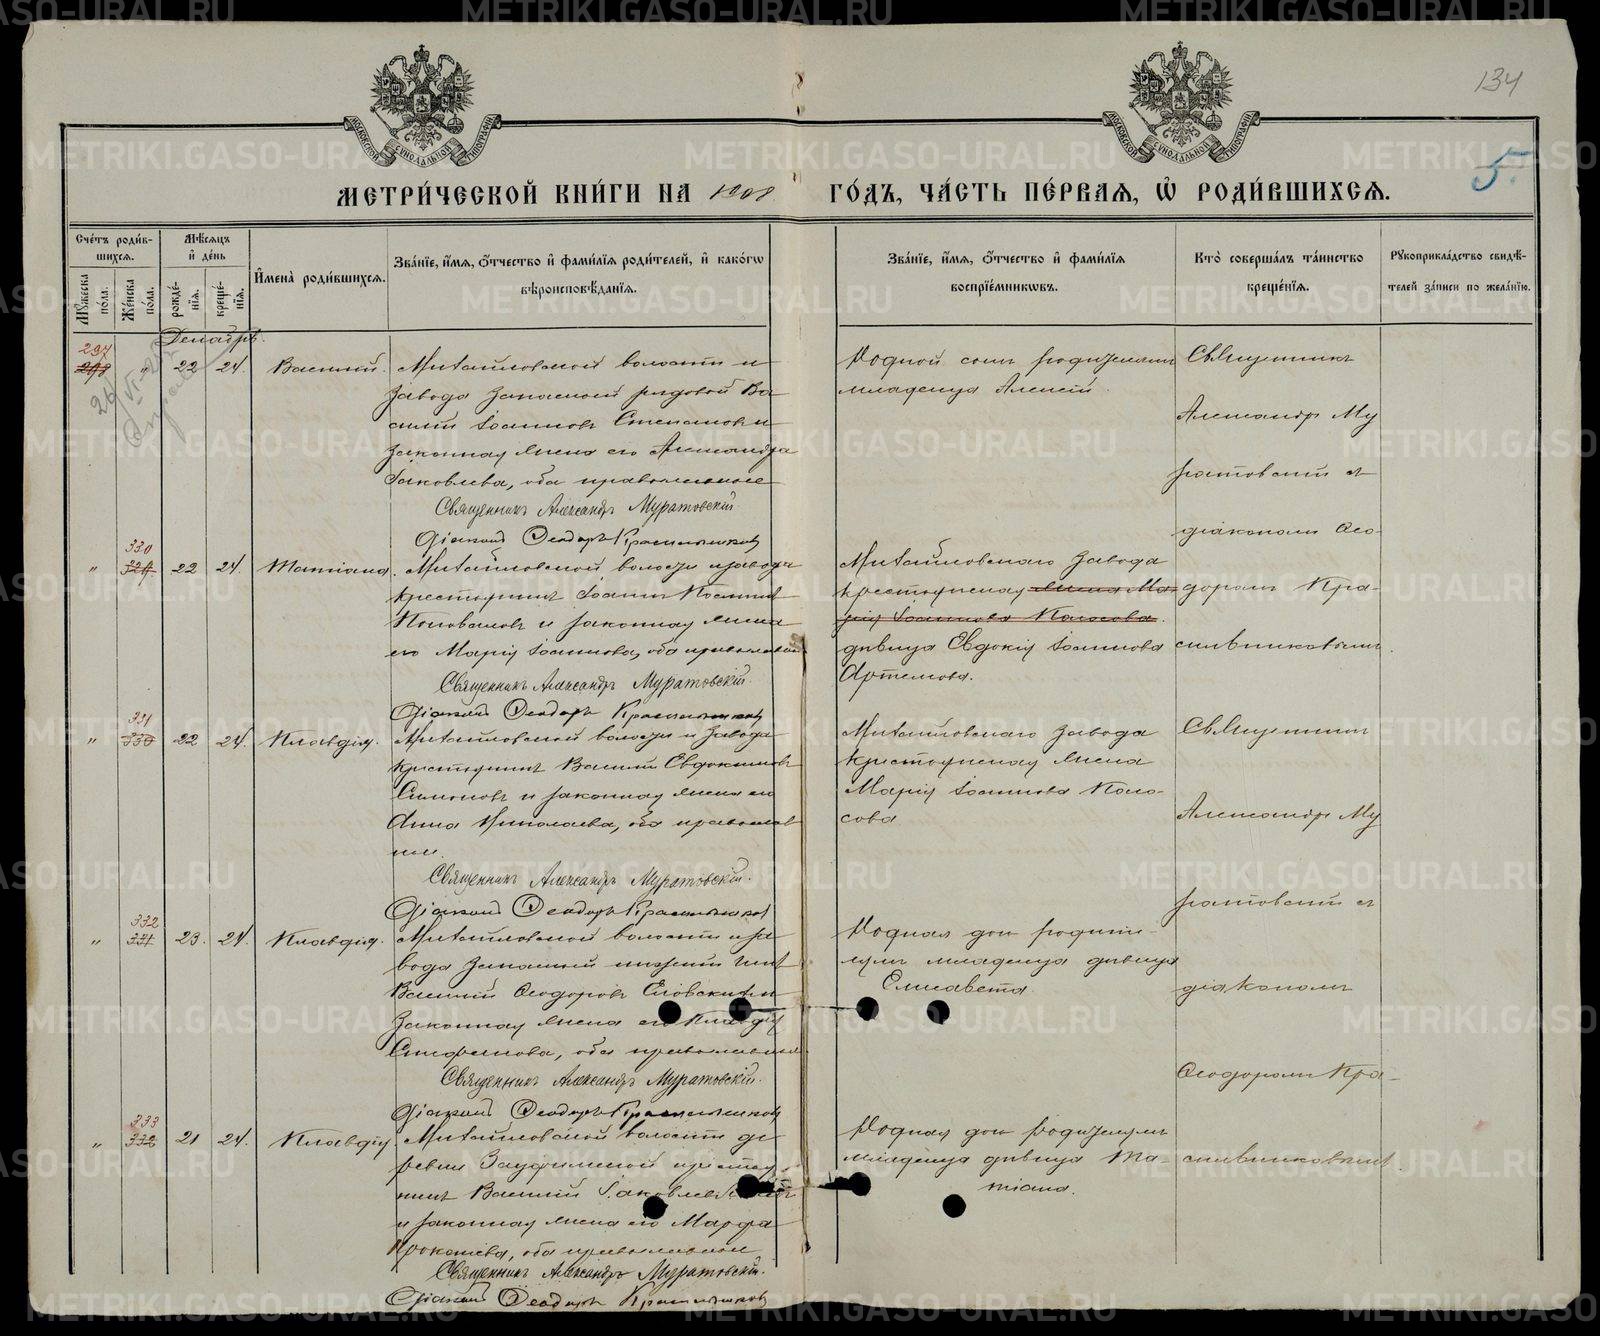 134
5.
МЕТРИ́ЧЕСКОЙ КНИ́ГИ НА 1908 ГО́ДЪ, ЧА́СТЬ ПЕ́РВАЯ, Ѡ҆ РОДИ́ВШИХСЯ.
Сче́тъ роди́вшихся.
Мꙋ́жеска по́ла.
Же́нска по́ла.
Мѣ́сяцъ и҆ де́нь
рожде́нїя.
креще́нїя.
И҆мена̀ роди́вшихся.
Зва́нїе, и҆́мя, ѻ҆́тчество и҆ фами́лїя роди́телей, и҆ како́гѡ вѣроисповѣ́данїя.
Зва́нїе, и҆́мя, ѻ҆́тчество и҆ фами́лїя воспрїе́мникѡвъ.
Кто̀ соверша́лъ та́инство креще́нїя.
Рꙋкоприкла́дство свидѣ́телей за́писи по жела́нїю.
Декабрь.
297
298 " 22 24. Василий.
Михайловской волости и
завода запасной рядовой Ва-
силий Іоанновъ Степановъ и
законная жена его Александра
Іаковлева, оба православные
Священникъ Александръ Муратовскій
Діаконъ Ѳеодоръ Красильников
Родной сынъ родителямъ
младенца Алексей.
Священникъ
Александръ Му
ратовскій съ
діакономъ Ѳео-
доромъ Кра-
сильниковымъ
330
329 " 22 24. Татіана.
Михайловской волости и завода
крестьянинъ Іоаннъ
Коноваловъ и законная жена
его Марія Іоаннова, оба православн
Священникъ Александръ Муратовскій.
Діаконъ Ѳеодоръ Красильников
Михайловскаго завода
крестьянская жена Ма-
рія Іоаннова Колосова.
дѣвица Евдокія Іоаннова
Артемова.
331
330 " 22 24. Клавдія.
Михайловской волости и завода
крестьянинъ Василій Евдокимовъ
Симоновъ и законная жена его
Анна Николаева, оба православ
ные.
Священникъ Александръ Муратовскій.
Діаконъ Ѳеодоръ Красильников
Михайловскаго завода
крестьянская жена
Марія Іоаннова Коло-
сова
Священникъ
Александръ Му
ратовскій съ
діакономъ
Ѳеодоромъ Кра-
сильниковымъ.
332
331 " 23. 24. Клавдія.
Михайловской волости и за
вода запасный нижній чинъ
Василій Ѳеодоровъ и
законная жена его Клавдія
Стефанова, оба православные
Священникъ Александръ Муратовскій.
Діаконъ Ѳеодоръ Красильников
Родная дочь родите-
лямъ младенца дѣвица
Елисавета.
333
332 " 21 24. Клавдія
Михайловской волости де-
ревни Зауфимской крестья
нинъ Василій Іаковлев
и законная жена его Марфа
Прокопіева, оба православные
Священникъ Александръ Муратовскій.
Діаконъ Ѳеодоръ Красильников
Родная дочь родителямъ
младенца дѣвица Та-
тіана.
METRIKI.GASO-URAL.RU